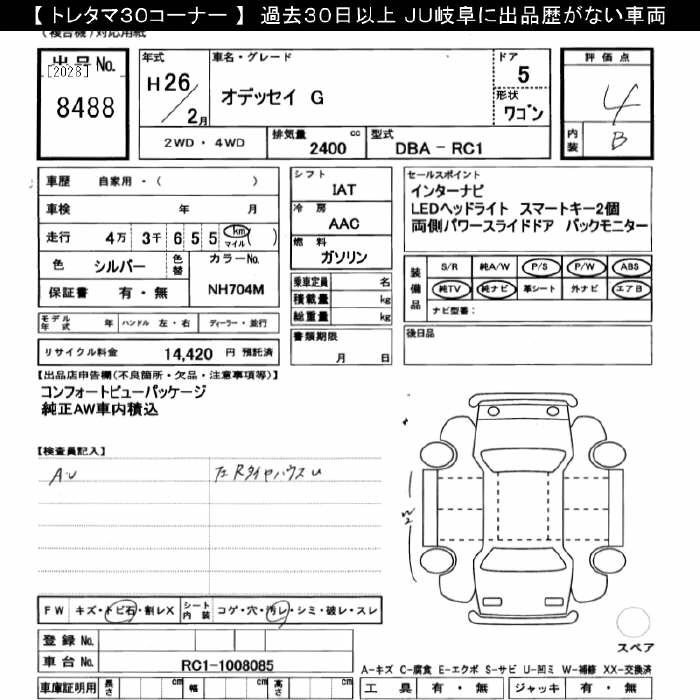 【 トレタマ30コーナー 】 過去30日以上 JU岐阜に出品歴がない車両
(複合機)対応用紙
出品No.
[2028]
8488
年式
H26
2月
車名・グレード
オデッセイ G
ドア
5
形状
ワゴン
評価点
4
内装
B
2WD・4WD
排気量 cc
2400
型式
DBA - RC1
車歴 自家用・( )
車検 年 月
走行 4万 3千 6 5 5 km マイル ( )
色 シルバー 色替
カラーNo.
NH704M
保証書 有・無
シフト
IAT
冷房
AAC
燃料
ガソリン
乗車定員 名
積載量 kg
総重量 kg
セールスポイント
インターナビ
LEDヘッドライト スマートキー2個
両側パワースライドドア バックモニター
装備品
S/R 純A/W P/S P/W ABS
純TV 純ナビ 革シート 外ナビ エアB
ナビ型番:
モデル年式 年 ハンドル 左・右 ディーラー・並行
リサイクル料金 14,420 円 預託済
書類期限
月 日
後日品
【出品店申告欄(不良箇所・欠品・注意事項等)】
コンフォートビューパッケージ
純正AW車内積込
【検査員記入】
A・U
左Rタイヤハウス U
W2
FW キズ・トビ石・割レX シート内装 コゲ・穴・汚レ・シミ・破レ・スレ
登録 No.
車台 No. RC1-1008085
車庫証明用 長さ cm 幅 cm 高さ cm
スペア
A-キズ C-腐食 E-エクボ S-サビ U-凹ミ W-補修 XX-交換済
工具 有・無 ジャッキ 有・無